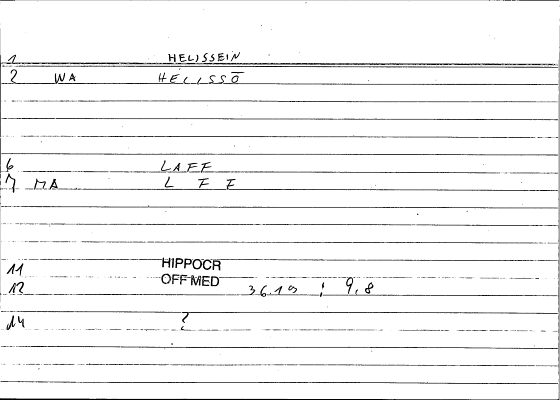 1 HELISSEIN
2 WA HELISSŌ
6 LAFF
7 MA L F F
11 HIPPOCR
12 OFF MED 36.19 ; 9,8
14 ?